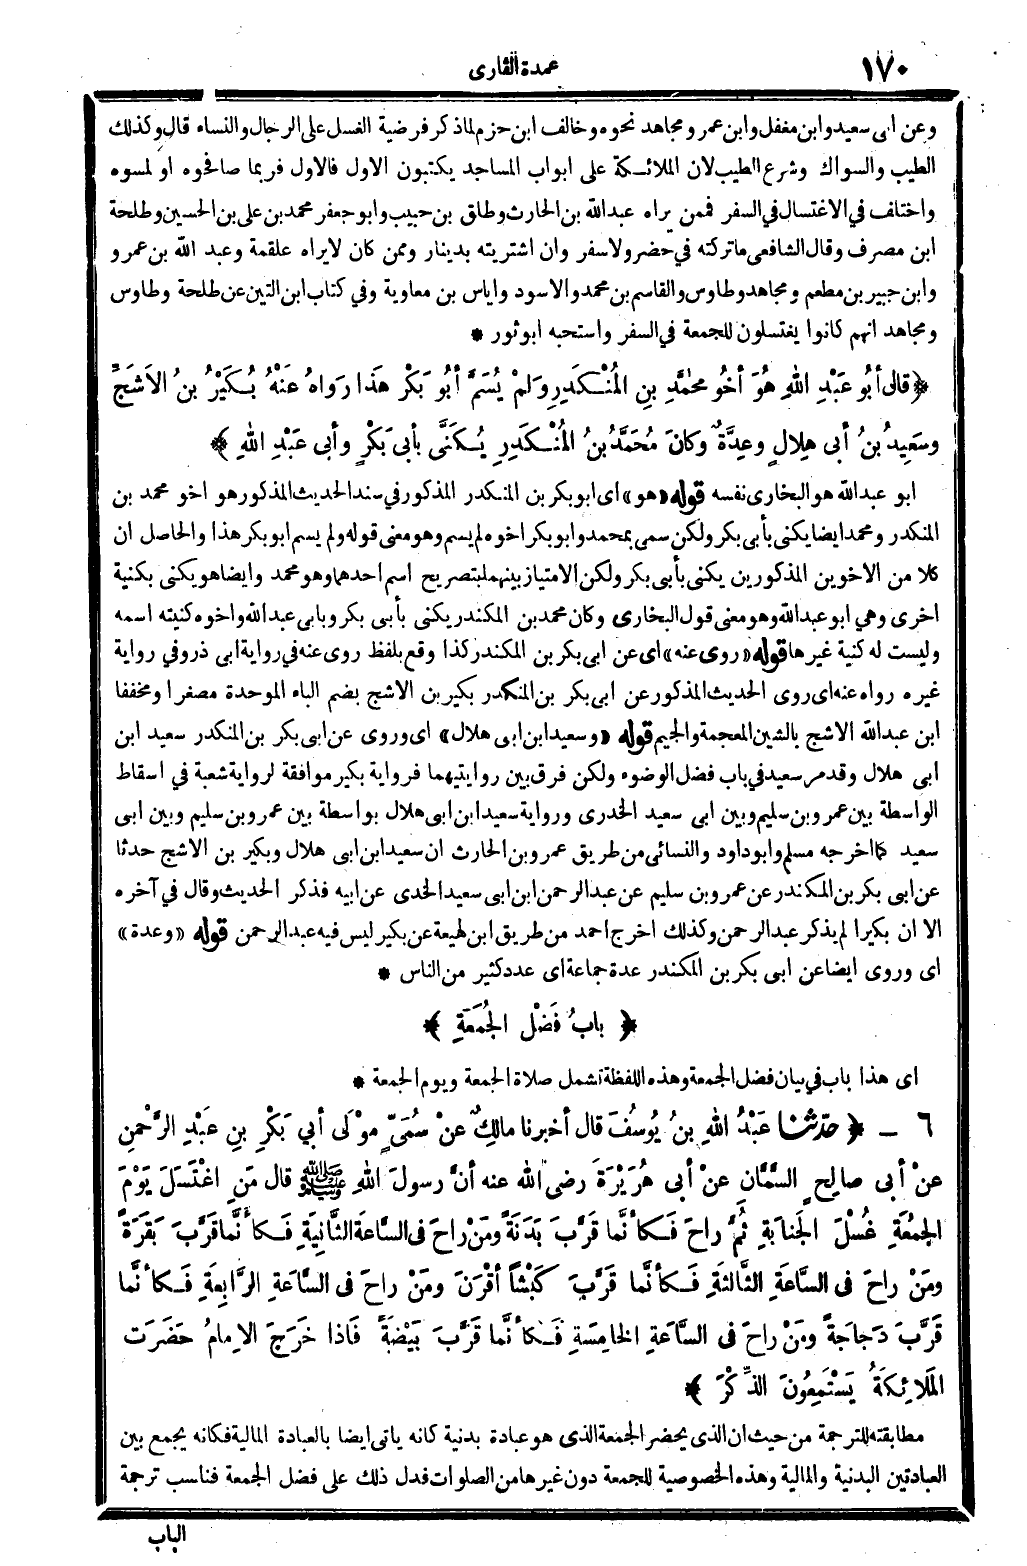 ١٧٠
عمدة القارى
وعن ابى سعيد وابن مغفل وابن عمر ومجاهد نحوه وخالف ابن حزم لما ذكر فرضية الغسل على الرجال والنساء قال وكذلك
الطيب والسواك وشرع الطيب لان الملائكة على ابواب المساجد يكتبون الاول فالاول فربما صافحوه او لمسوه
واختلف في الاغتسال في السفر فممن يراه عبدالله بن الحارث وطلق بن حبيب وابو جعفر محمد بن على بن الحسين وطلحة
ابن مصرف وقال الشافعى ماتركته في حضر ولا سفر وان اشتريته بدينار وممن كان لايراه علقمة وعبد الله بن عمر و
وابن جبير بن مطعم ومجاهد وطاوس والقاسم بن محمد والاسود واياس بن معاوية وفي كتاب ابن التين عن طلحة وطاوس
ومجاهد انهم كانوا يغتسلون للجمعة في السفر واستحبه ابو ثور *
﴿ قال أبُو عَبْدِ اللهِ هُوَ أخُو محمَّدِ بنِ المُنْكَدِرِ وَلمْ يُسَمَّ أبُو بَكْرٍ هَذَا رَوَاهُ عَنْهُ بُكَيْرُ بنُ الاَشَجِّ
وسَعِيدُ بنُ أبى هِلاَلٍ وعِدَّةٌ وكانَ مُحَمَّدُ بنُ المُنْكَدِرِ يُكَنَّى بأبى بَكْرٍ وأبى عَبْدِ اللهِ ﴾
ابو عبدالله هو البخارى نفسه قوله «هو» اى ابو بكر بن المنكدر المذكور في سند الحديث المذكور هو اخو محمد بن
المنكدر ومحمد ايضا يكنى بأبى بكر ولكن سمى بمحمد وابو بكر اخوه لم يسم وهو معنى قوله ولم يسم ابو بكر هذا والحاصل ان
كلا من الاخوين المذكورين يكنى بأبى بكر ولكن الامتياز بينهما بتصريح اسم احدهما وهو محمد وايضا هو يكنى بكنية
اخرى وهي ابو عبدالله وهو معنى قول البخارى وكان محمد بن المكندر يكنى بأبى بكر وبابى عبدالله واخوه كنيته اسمه
وليست له كنية غيرها قوله «روى عنه» اى عن ابى بكر بن المكندر كذا وقع بلفظ روى عنه في رواية ابى ذر وفي رواية
غيره رواه عنه اى روى الحديث المذكور عن ابى بكر بن المنكدر بكير بن الاشج بضم الباء الموحدة مصغرا ومخففا
ابن عبدالله الاشج بالشين المعجمة والجيم قوله «وسعيد ابن ابى هلال» اى وروى عن ابى بكر بن المنكدر سعيد ابن
ابى هلال وقد مر سعيد في باب فضل الوضوء ولكن فرق بين روايتيهما فرواية بكير موافقة لرواية شعبة في اسقاط
الواسطة بين عمرو بن سليم وبين ابى سعيد الخدرى ورواية سعيد ابن ابى هلال بواسطة بين عمرو بن سليم وبين ابى
سعيد كما اخرجه مسلم وابو داود والنسائى من طريق عمرو بن الحارث ان سعيد ابن ابى هلال وبكير بن الاشج حدثا
عن ابى بكر بن المكندر عن عمرو بن سليم عن عبدالرحمن ابن ابى سعيد الخدى عن ابيه فذكر الحديث وقال في آخره
الا ان بكيرا لم يذكر عبدالرحمن وكذلك اخرج احمد من طريق ابن لهيعة عن بكير ليس فيه عبدالرحمن قوله «وعدة»
اى وروى ايضا عن ابى بكر بن المكندر عدة جماعة اى عدد كثير من الناس *
﴿ بابُ فَضْلِ الجُمُعَةِ ﴾
اى هذا باب في بيان فضل الجمعة وهذه اللفظة تشمل صلاة الجمعة ويوم الجمعة *
٦ ـ ﴿ حدّثنا عَبْدُ اللهِ بنُ يُوسُفَ قال أخبرنا مالِكٌ عنْ سُمَىٍّ موْلَى أبي بَكْرِ بنِ عَبْدِ الرَّحْمنِ
عنْ أبى صالحٍ السَّمَّانِ عنْ أبى هُرَيْرَةَ رضى الله عنه أنَّ رسولَ اللهِ ﷺ قال مَنِ اغْتَسَلَ يَوْمَ
الجمُعَةِ غُسْلَ الجَنابَةِ ثُمَّ راحَ فَكأنَّما قَرَّبَ بَدَنَةً ومَنْ راحَ فى السَّاعَةِ الثَّانِيَةِ فَكأنَّما قَرَّبَ بَقَرَةً
ومَنْ راحَ فى السَّاعَةِ الثَّالثَةِ فَكأنَّما قَرَّبَ كَبْشاً أقْرَنَ ومَنْ راحَ فى السَّاعَةِ الرَّابِعَةِ فَكأنَّما
قَرَّبَ دَجاجَةً ومَنْ راحَ فى السَّاعَةِ الخامِسَةِ فَكأنَّما قَرَّبَ بَيْضَةً فَاذا خَرَجَ الاِمامُ حَضَرَتِ
المَلاَئِكَةُ يَسْتَمِعُونَ الذِّكْرَ ﴾
مطابقته للترجمة من حيث ان الذى يحضر الجمعة الذى هو عبادة بدنية كانه ياتى ايضا بالعبادة المالية فكانه يجمع بين
العبادتين البدنية والمالية وهذه الخصوصية للجمعة دون غيرها من الصلوات فدل ذلك على فضل الجمعة فناسب ترجمة
الباب